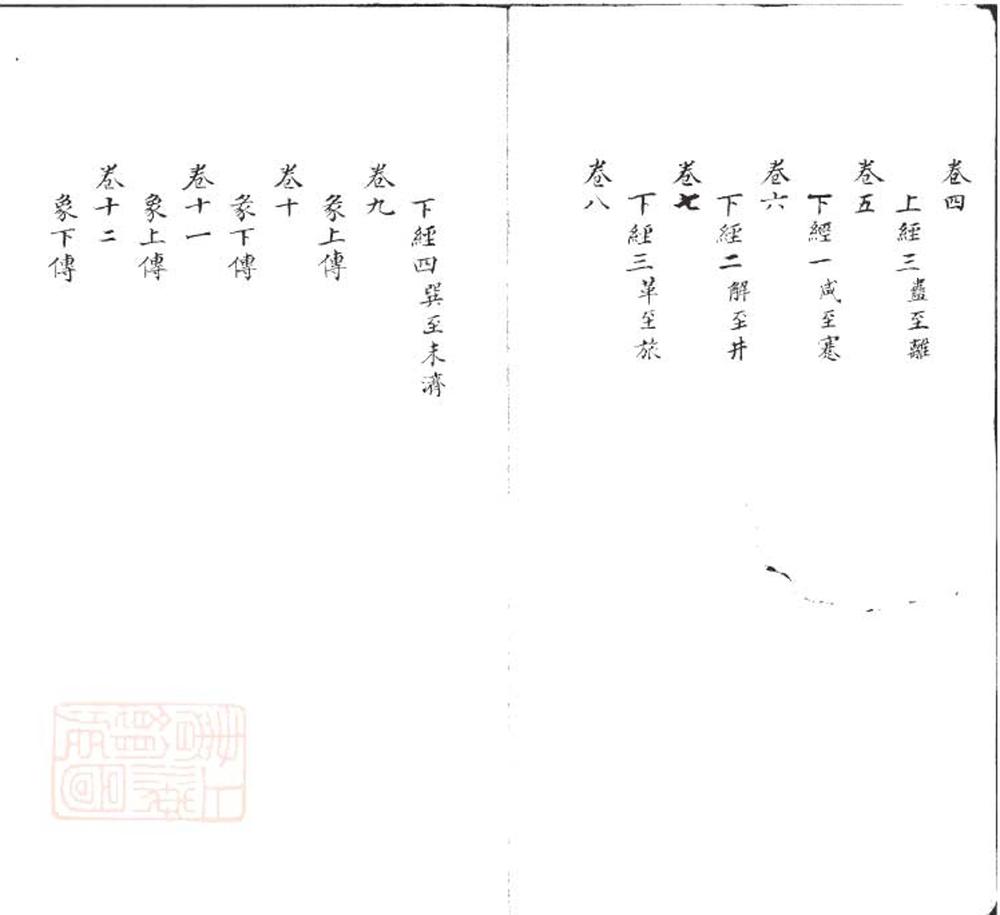 卷四
上經三蠱至離
卷五
下經一咸至蹇
卷六
下經二解至井
卷七
下經三革至旅
卷八
下經四巽至未濟
卷九
彖上傳
卷十
彖下傳
卷十一
象上傳
卷十二
象下傳